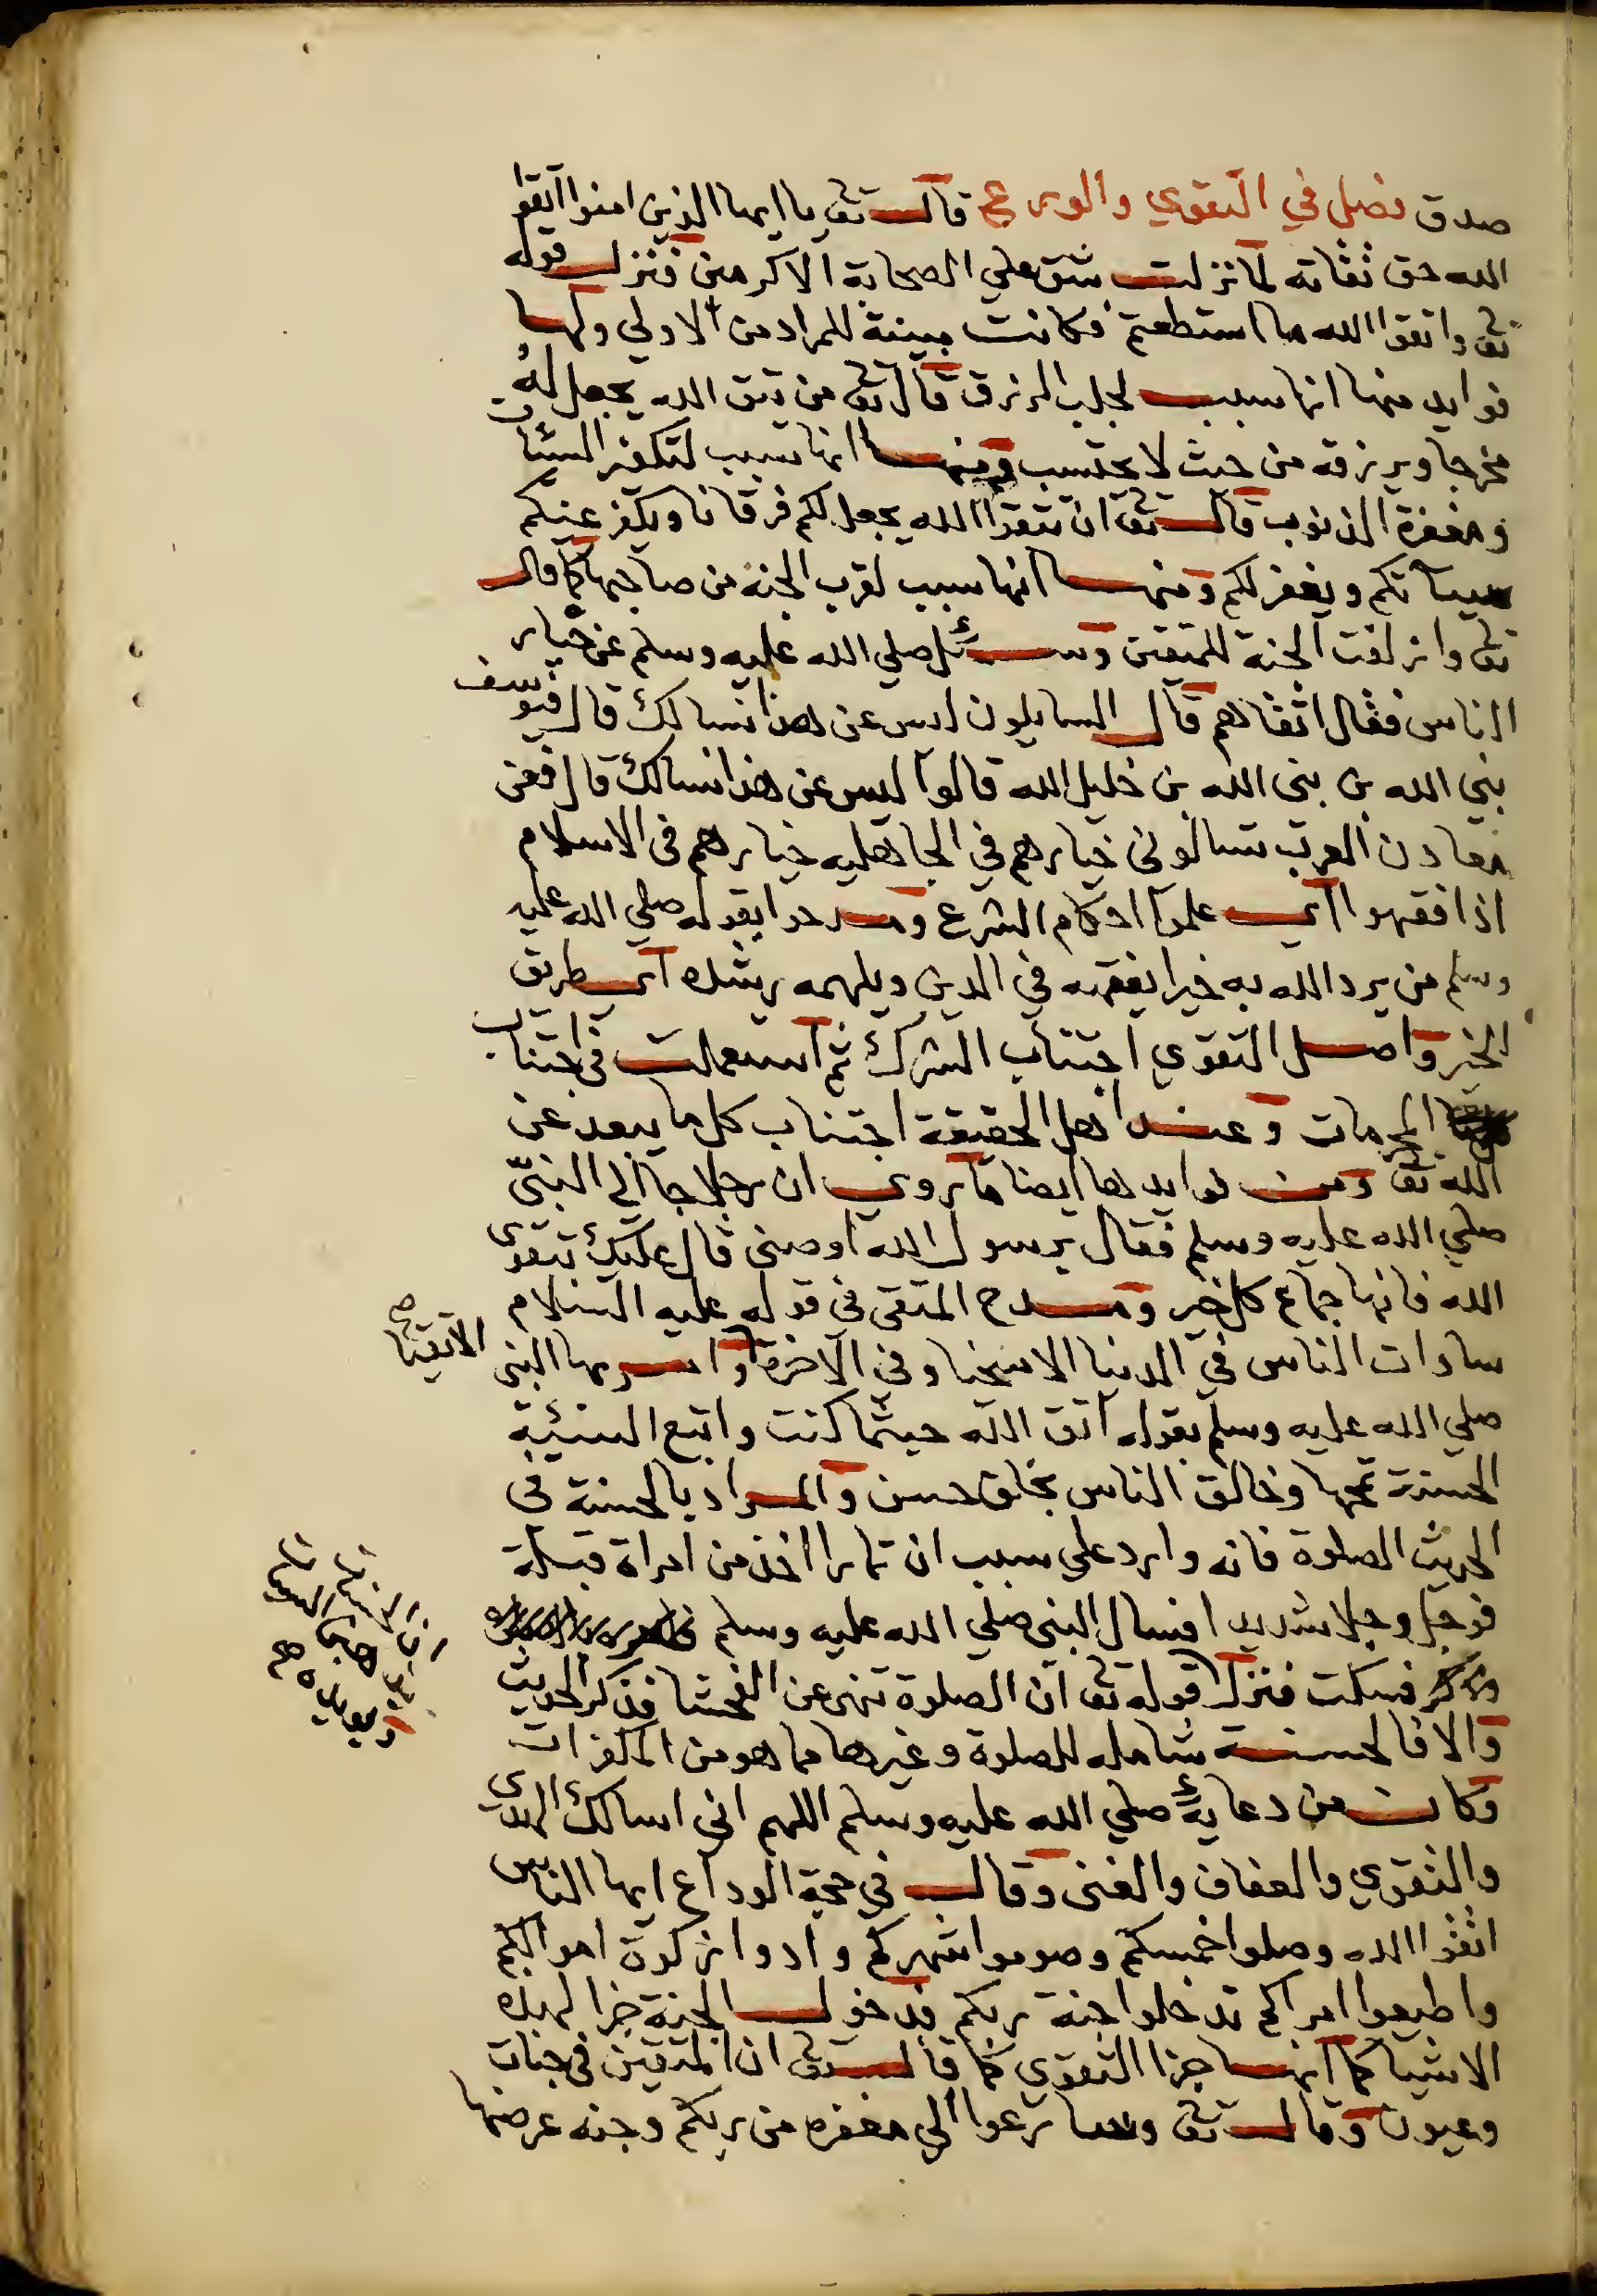 صدق فصل في التقوي والورع قال تع يا ايها الذين امنوا اتقوا
الله حق تقاته لما نزلت شق علي الصحابة الاكرمين فنزل قوله
تع واتقوا الله ما استطعتم فكانت مبينة للمراد من الاولي ولها
فوايد منها انها سبب لجلب الرزق قال تع من يتق الله يجعل له
مخرجا ويرزقه من حيث لا يحتسب ومنها انها سبب لتكفير السئات
ومغفرة الذنوب قال تع ان تتقوا الله يجعل لكم فرقانا ويكفر عنكم
سياتكم ويغفر لكم ومنها انها سبب لقرب الجنة من صاحبها كما قال
تع وازلفت الجنة للمتقين وسئل صلي الله عليه وسلم عن خيار
الناس فقال اتقاهم قال السايلون ليس عن هذا نسالك قال فيوسف
نبي الله بن نبي الله بن خليل الله قالوا ليس عن هذا نسالك قال فعن
معادن العرب تسالوني خيارهم في الجاهليه خيارهم في الاسلام
اذا فقهوا اي علموا احكام الشرع ومدحوا بقوله صلي الله عليه
وسلم من يرد الله به خيرا يفقهه في الدين ويلهمه رشده اي طريق
الخير واصل التقوي اجتناب الشرك ثم استعملت في اجتناب
المحرمات وعند اهل الحقيقة اجتناب كل ما يبعد عن
الله تع ومن فوايدها ايضا ما روي ان رجلا جا الي النبيّ
صلي الله عليه وسلم فقال يرسول الله اوصني قال عليك بتقوي
الله فانها جماع كل خير ومدح المتقي في قوله عليه السلام
سادات الناس في الدنيا الاسخيا وفي الاخرة وامر بها النبي
الاتقيا صح
صلي الله عليه وسلم بقوله اتق الله حيثما كنت واتبع السئية
الحسنة تمحها وخالق الناس بخلق حسن والمراد بالحسنة في
الحديث الصلوة فانه وارد علي سبب ان تمارا اخذ من امراة قبلة
فوجل وجلا شديدا فسال النبي صلي الله عليه وسلم
فسكت فنزل قوله تع ان الصلوة تنهي عن الفحشا فذكر الحديث
ان الحسنات
يذهبن السيات
صح
والا فالحسنة شامله للصلوة وغيرها مما هو من المكفرات
وكان من دعايه صلي الله عليه وسلم اللهم اني اسالك الهدي
والتقوي والعفاف والغنى وقال في حجة الوداع ايها الناس
اتقوا الله وصلوا خمسكم وصوموا شهركم وادوا زكوة اموالكم
واطيعوا امراكم تدخلوا جنة ربكم فدخول الجنة جزا لهذه
الاشيا كما انها جزا التقوي كما قال تع ان المتقين في جنات
وعيون وقال تع وسارعوا الي مغفره من ربكم وجنه عرضها